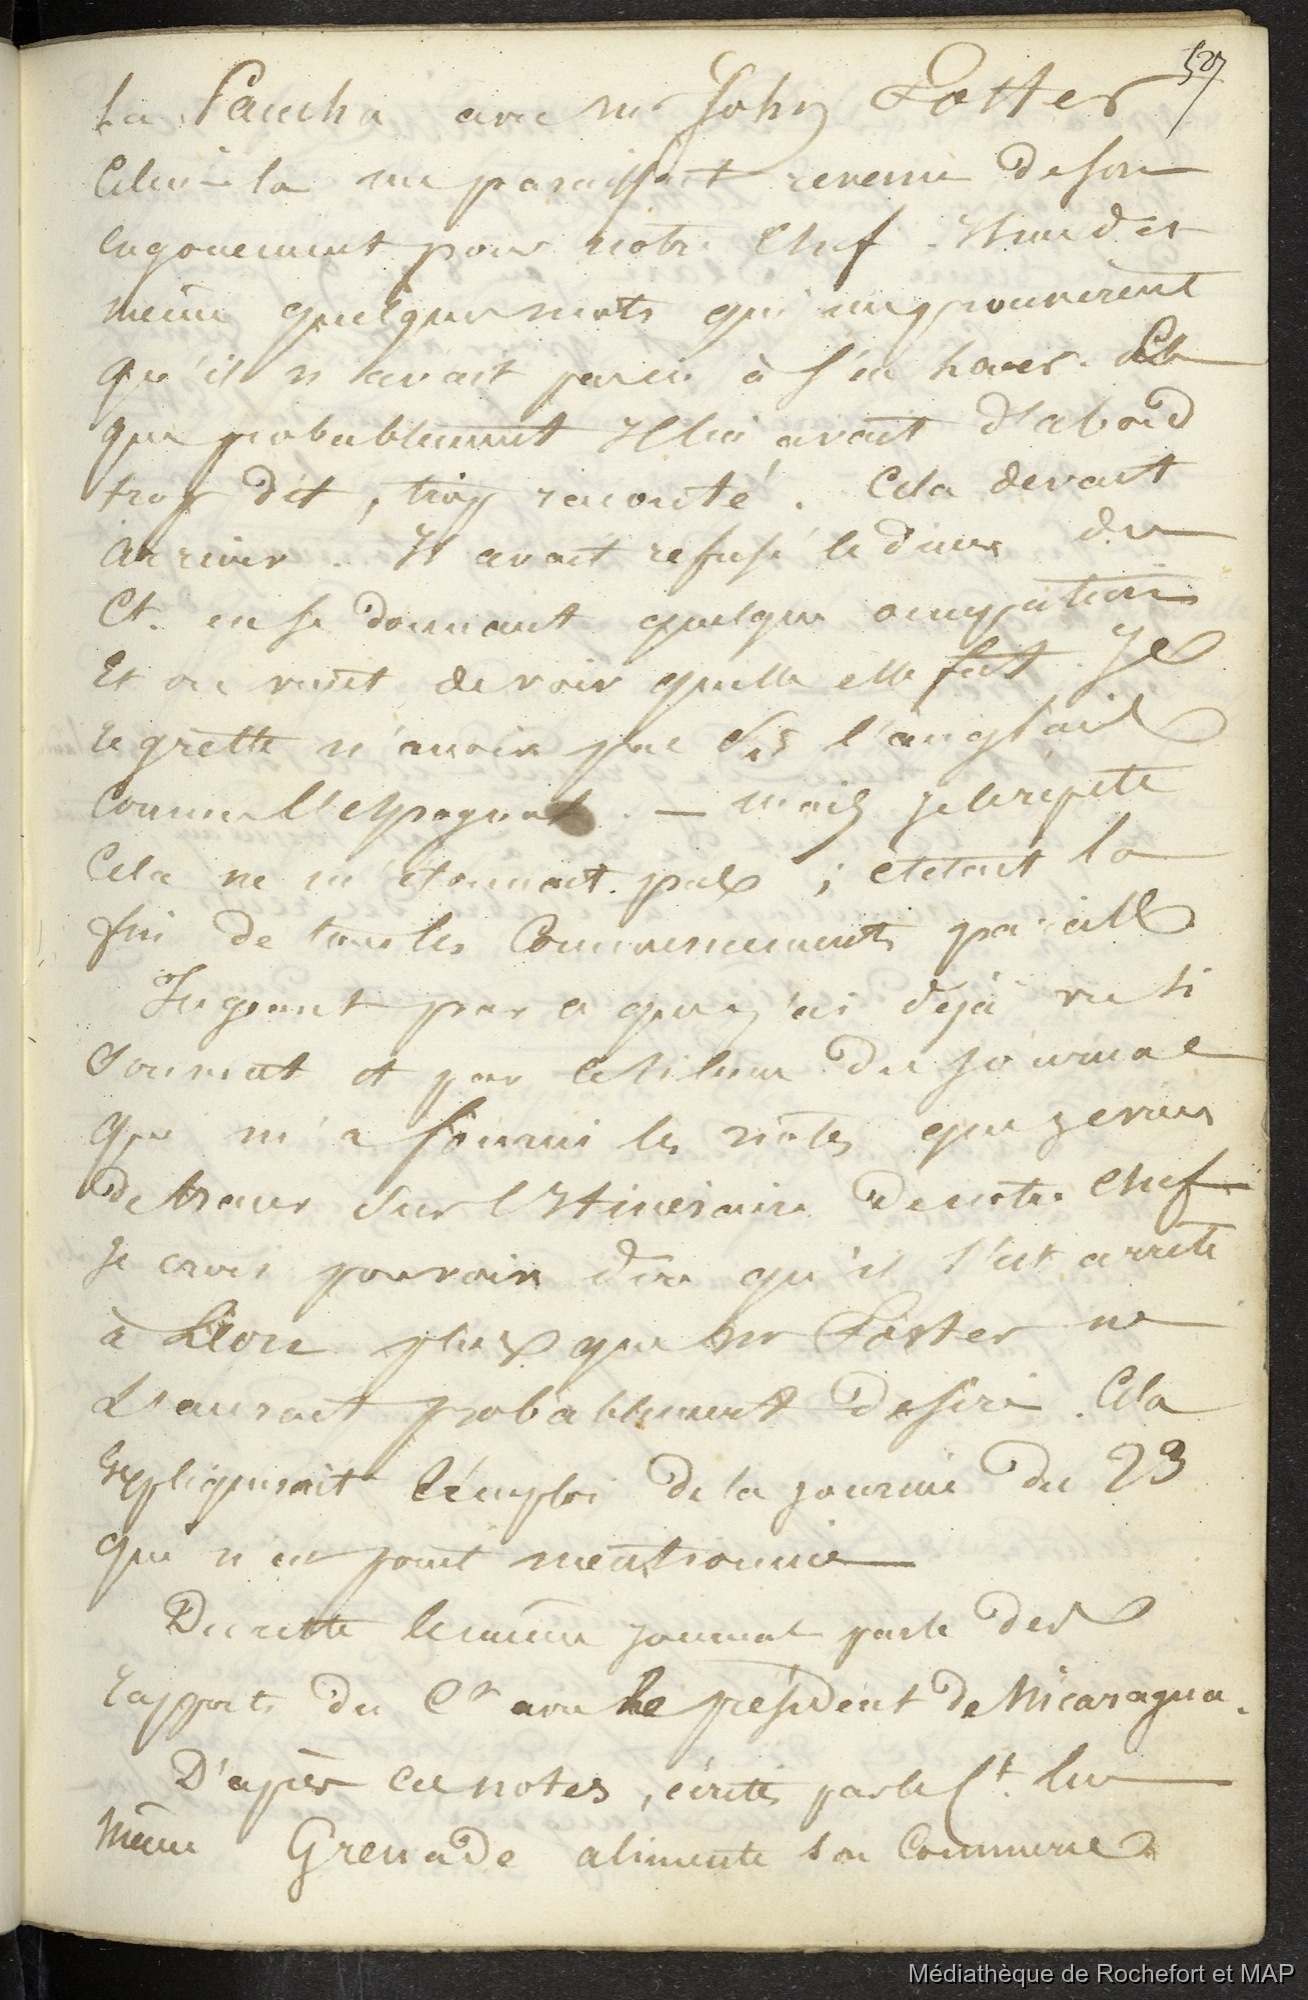 527
La Paucha avec mr John Potter
Celui-la me paraissait revenu de son
engouement pour notre Chef. Il me dit
même quelques mots qui me prouvèrent
qu'il n'avait pas eu à s'en louer. Et
que probablement Il lui avait d'abord
trop dit, trop raconté. Cela devait
arriver. Il avait refusé le diner du
Ct. en se donnant quelque occupation
Et on vient de voir quelle elle fut. Je
regrette n'avoir pas sû l'anglais
comme l'espagnol. — mais je le repete
Cela ne m'étonnait pas ; c'etait la
fin de tous les Commencements pareils
Jugeant par ce que j'ai dejà vu si
souvent et par le silence du journal
qui m'a fourni les notes que je viens
de tracer sur l'Itineraire de notre Chef
je crois pouvoir dire qu'il s'est arrêté
à Léon plus que mr Potter ne
L'aurait probablement desiré. Cela
expliquerait l'emploi de la journée du 23
qui n'est point mentionnée
Du reste le même journal parle des
rapports du Ct avec Le président de Nicaragua.
D'après ces notes, écrites par le Ct. lui
même Grenade alimente son Commerce
Médiathèque de Rochefort et MAP